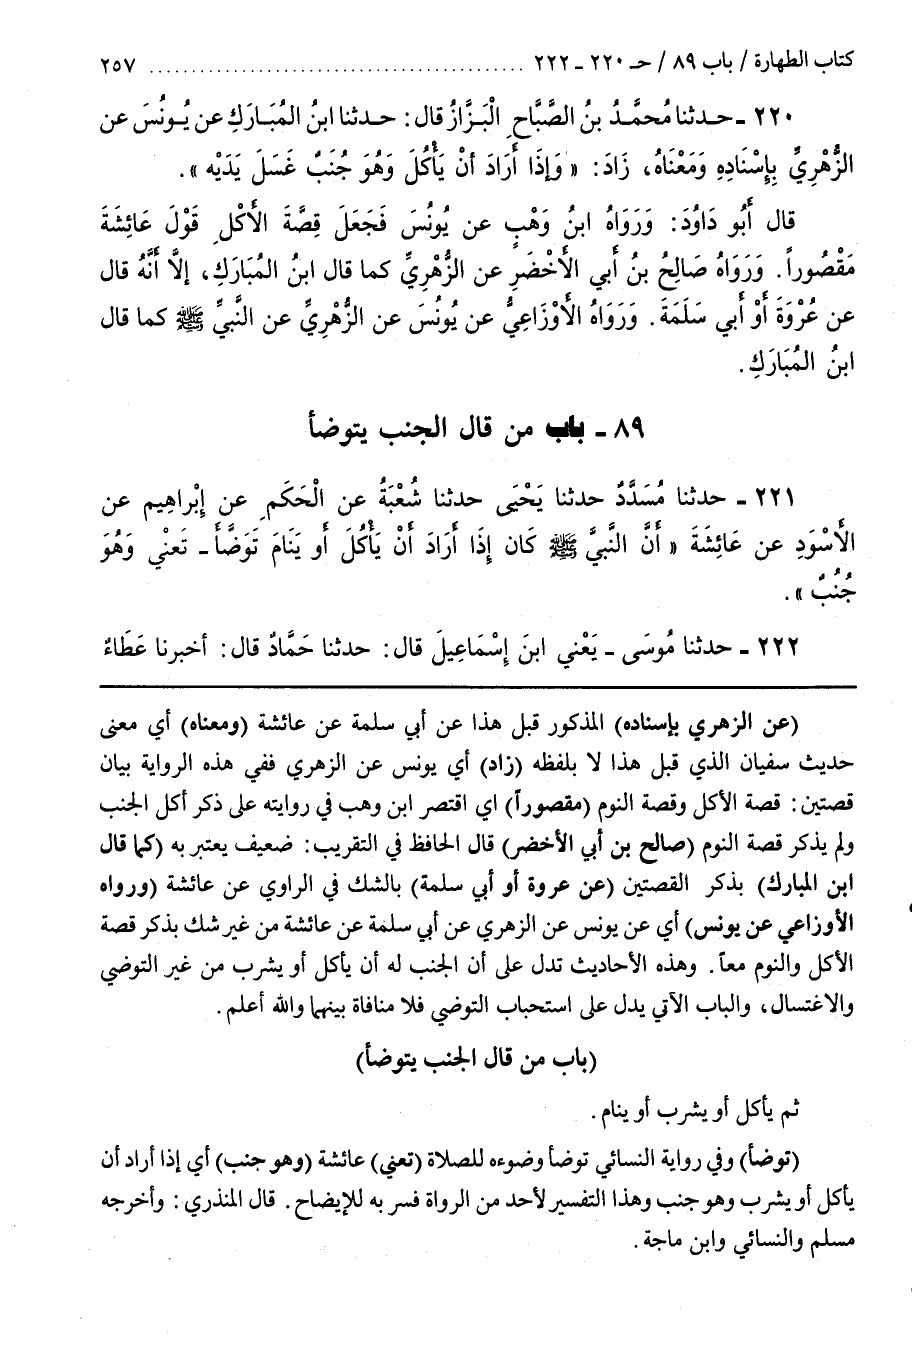 كتاب الطهارة / باب ٨٩ / حـ ٢٢٠ ـ ٢٢٢ ............................................ ٢٥٧
٢٢٠ ـ حـدثنا مُحمَّـدُ بنُ الصَّبَّاحِ الْبَزَّازُ قال: حـدثنا ابنُ المُبَـارَكِ عن يُـونُسَ عن
الزُّهْرِيِّ بِإِسْنَادِهِ وَمَعْنَاهُ، زَادَ: « وَإِذَا أَرَادَ أنْ يَأْكُلَ وَهُوَ جُنُبٌ غَسَلَ يَدَيْه ».
قال أَبُو دَاوُدَ: وَرَوَاهُ ابنُ وَهْبٍ عن يُونُسَ فَجَعَلَ قِصَّةَ الأَكْلِ قَوْلَ عَائِشَةَ
مَقْصُوراً. وَرَوَاهُ صَالِحُ بنُ أَبي الأَخْضَرِ عن الزُّهْرِيِّ كما قال ابنُ المُبَارَكِ، إلَّا أَنَّهُ قال
عن عُرْوَةَ أَوْ أبي سَلَمَةَ. وَرَوَاهُ الأَوْزَاعِيُّ عن يُونُسَ عن الزُّهْرِيِّ عن النَّبيِّ ﷺ كما قال
ابنُ المُبَارَكِ.
٨٩ ـ باب من قال الجنب يتوضأ
٢٢١ ـ حدثنا مُسَدَّدٌ حدثنا يَحْيَى حدثنا شُعْبَةُ عن الْحَكَمِ عن إِبْراهِيم عن
الأَسْوَدِ عن عَائِشَةَ « أَنَّ النَّبيَّ ﷺ كَان إِذَا أَرَادَ أَنْ يَأْكُلَ أو يَنَامَ تَوَضَّأَ ـ تَعْنْي وَهُوَ
جُنُبٌ ».
٢٢٢ ـ حدثنا مُوسَى ـ يَعْني ابنَ إِسْمَاعِيلَ قال: حدثنا حَمَّادٌ قال: أخبرنا عَطَاءٌ
(عن الزهري بإسناده) المذكور قبل هذا عن أبي سلمة عن عائشة (ومعناه) أي معنى
حديث سفيان الذي قبل هذا لا بلفظه (زاد) أي يونس عن الزهري ففي هذه الرواية بيان
قصتين: قصة الأكل وقصة النوم (مقصوراً) اي اقتصر ابن وهب في روايته على ذكر أكل الجنب
ولم يذكر قصة النوم (صالح بن أبي الأخضر) قال الحافظ في التقريب: ضعيف يعتبر به (كما قال
ابن المبارك) بذكر القصتين (عن عروة أو أبي سلمة) بالشك في الراوي عن عائشة (ورواه
الأوزاعي عن يونس) أي عن يونس عن الزهري عن أبي سلمة عن عائشة من غير شك بذكر قصة
الأكل والنوم معاً. وهذه الأحاديث تدل على أن الجنب له أن يأكل أو يشرب من غير التوضي
والاغتسال، والباب الآتي يدل على استحباب التوضي فلا منافاة بينهما والله أعلم.
(باب من قال الجنب يتوضأ)
ثم يأكل أو يشرب أو ينام.
(توضأ) وفي رواية النسائي توضأ وضوءه للصلاة (تعني) عائشة (وهو جنب) أي إذا أراد أن
يأكل أو يشرب وهو جنب وهذا التفسير لأحد من الرواة فسر به للإيضاح. قال المنذري: وأخرجه
مسلم والنسائي وابن ماجة.